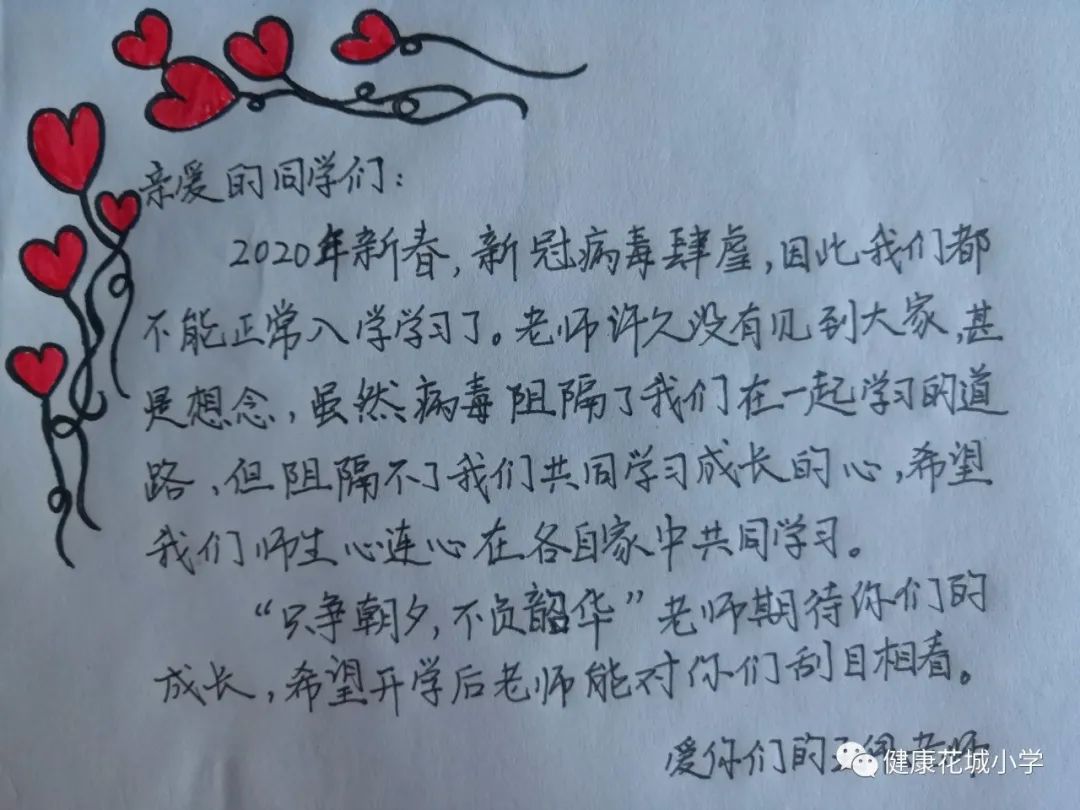 亲爱的同学们：
2020年新春，新冠病毒肆虐，因此我们都
不能正常入学学习了。老师许久没有见到大家，甚
是想念，虽然病毒阻隔了我们在一起学习的道
路，但阻隔不了我们共同学习成长的心，希望
我们师生心连心在各自家中共同学习。
“只争朝夕，不负韶华”老师期待你们的
成长，希望开学后老师能对你们刮目相看。
爱你们的
健康花城小学